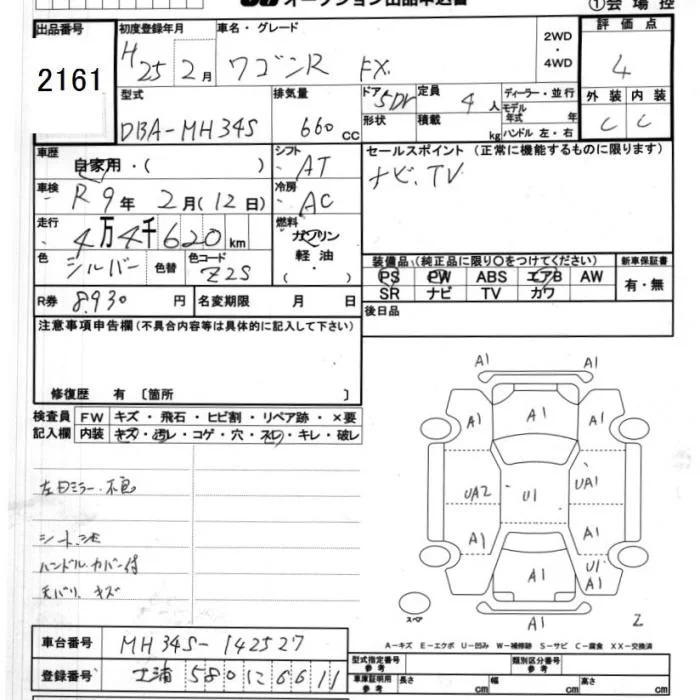 オークション出品申込書
①会場控
出品番号 初度登録年月 車名・グレード 評価点
2161 H25 2月 ワゴンR FX 2WD・4WD 4
型式 排気量 ドア 定員 ディーラー・並行 外装 内装
DBA-MH34S 660cc 5DR 4人 モデル年式 年 C C
形状 積載 kg ハンドル 左・右
車歴 シフト セールスポイント (正常に機能するものに限ります)
自家用・( ) AT ナビ、TV
車検 冷房
R9年 2月(12日) AC
走行 燃料
4万4千620km ガソリン
軽油
・
( )
色 色替 色コード
シルバー Z2S
装備品(純正品に限り○をつけてください) 新車保証書
PS PW ABS エアB AW 有・無
SR ナビ TV カワ
R券 8,930円 名変期限 月 日
後日品
注意事項申告欄(不具合内容等は具体的に記入して下さい)
修復歴 有〔箇所 〕
検査員記入欄 FW キズ・飛石・ヒビ割・リペア跡・×要
内装 キズ・汚レ・コゲ・穴・スレ・キレ・破レ
左ミラー不良
シート
ハンドルカバー付
天バリ、キズ
A1 A1
A1 A1 A1
UA2 U1 UA1
A1 A1
A1 U1
A1
スペア
Z
A-キズ E-エクボ U-凹み W-補修跡 S-サビ C-腐食 XX-交換済
車台番号 MH34S-142527
登録番号 土浦 580 に 6611
型式指定番号 参考 類別区分番号 参考
車庫証明用 参考 長さ cm 幅 cm 高さ cm